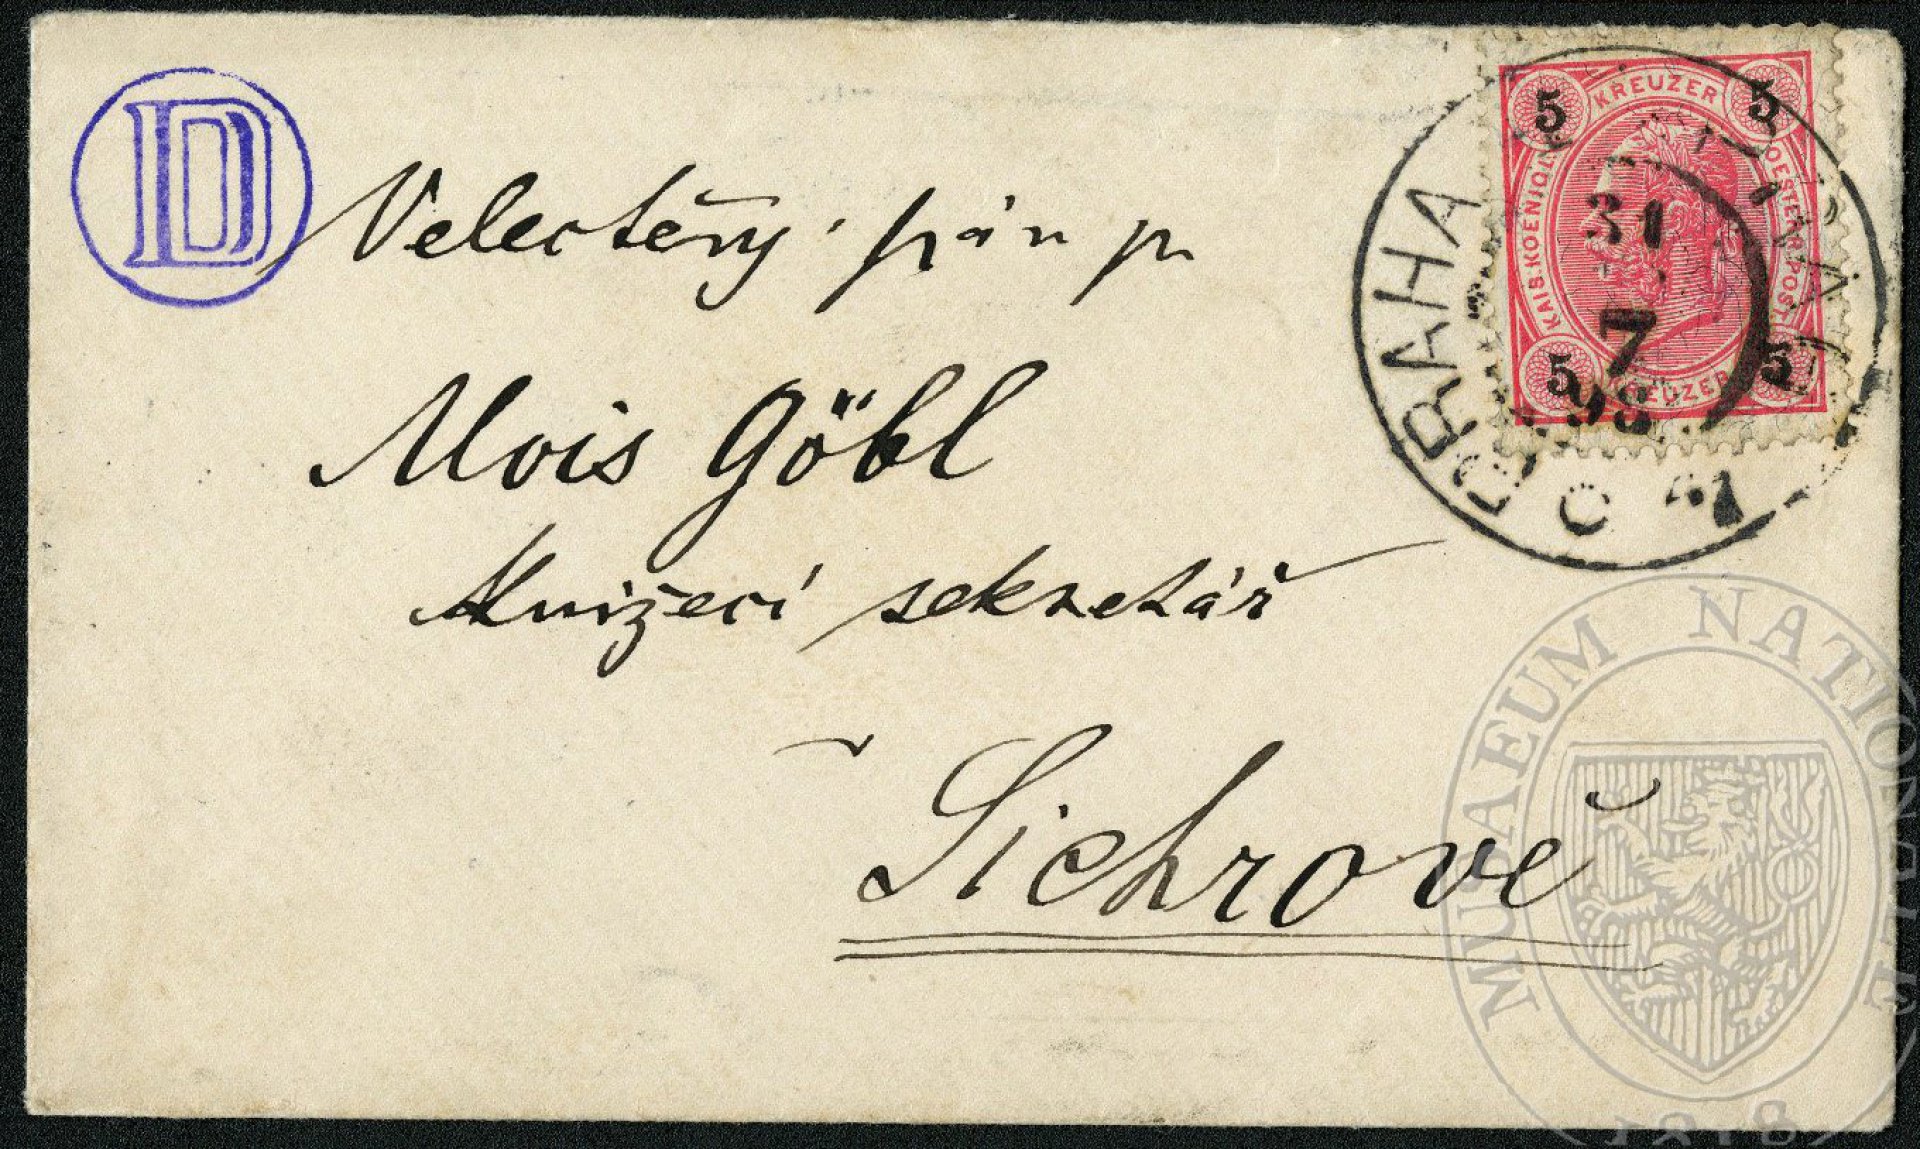 D
Velectěný pán p
Alois Göbl
Knižecí sekretář
v Sichrově
PRAHA
31
7
98
5 KREUZER 5
KAIS. KOENIGL. OESTERR. POST
5 KREUZER 5
MUSAEUM NATIONALE
1818